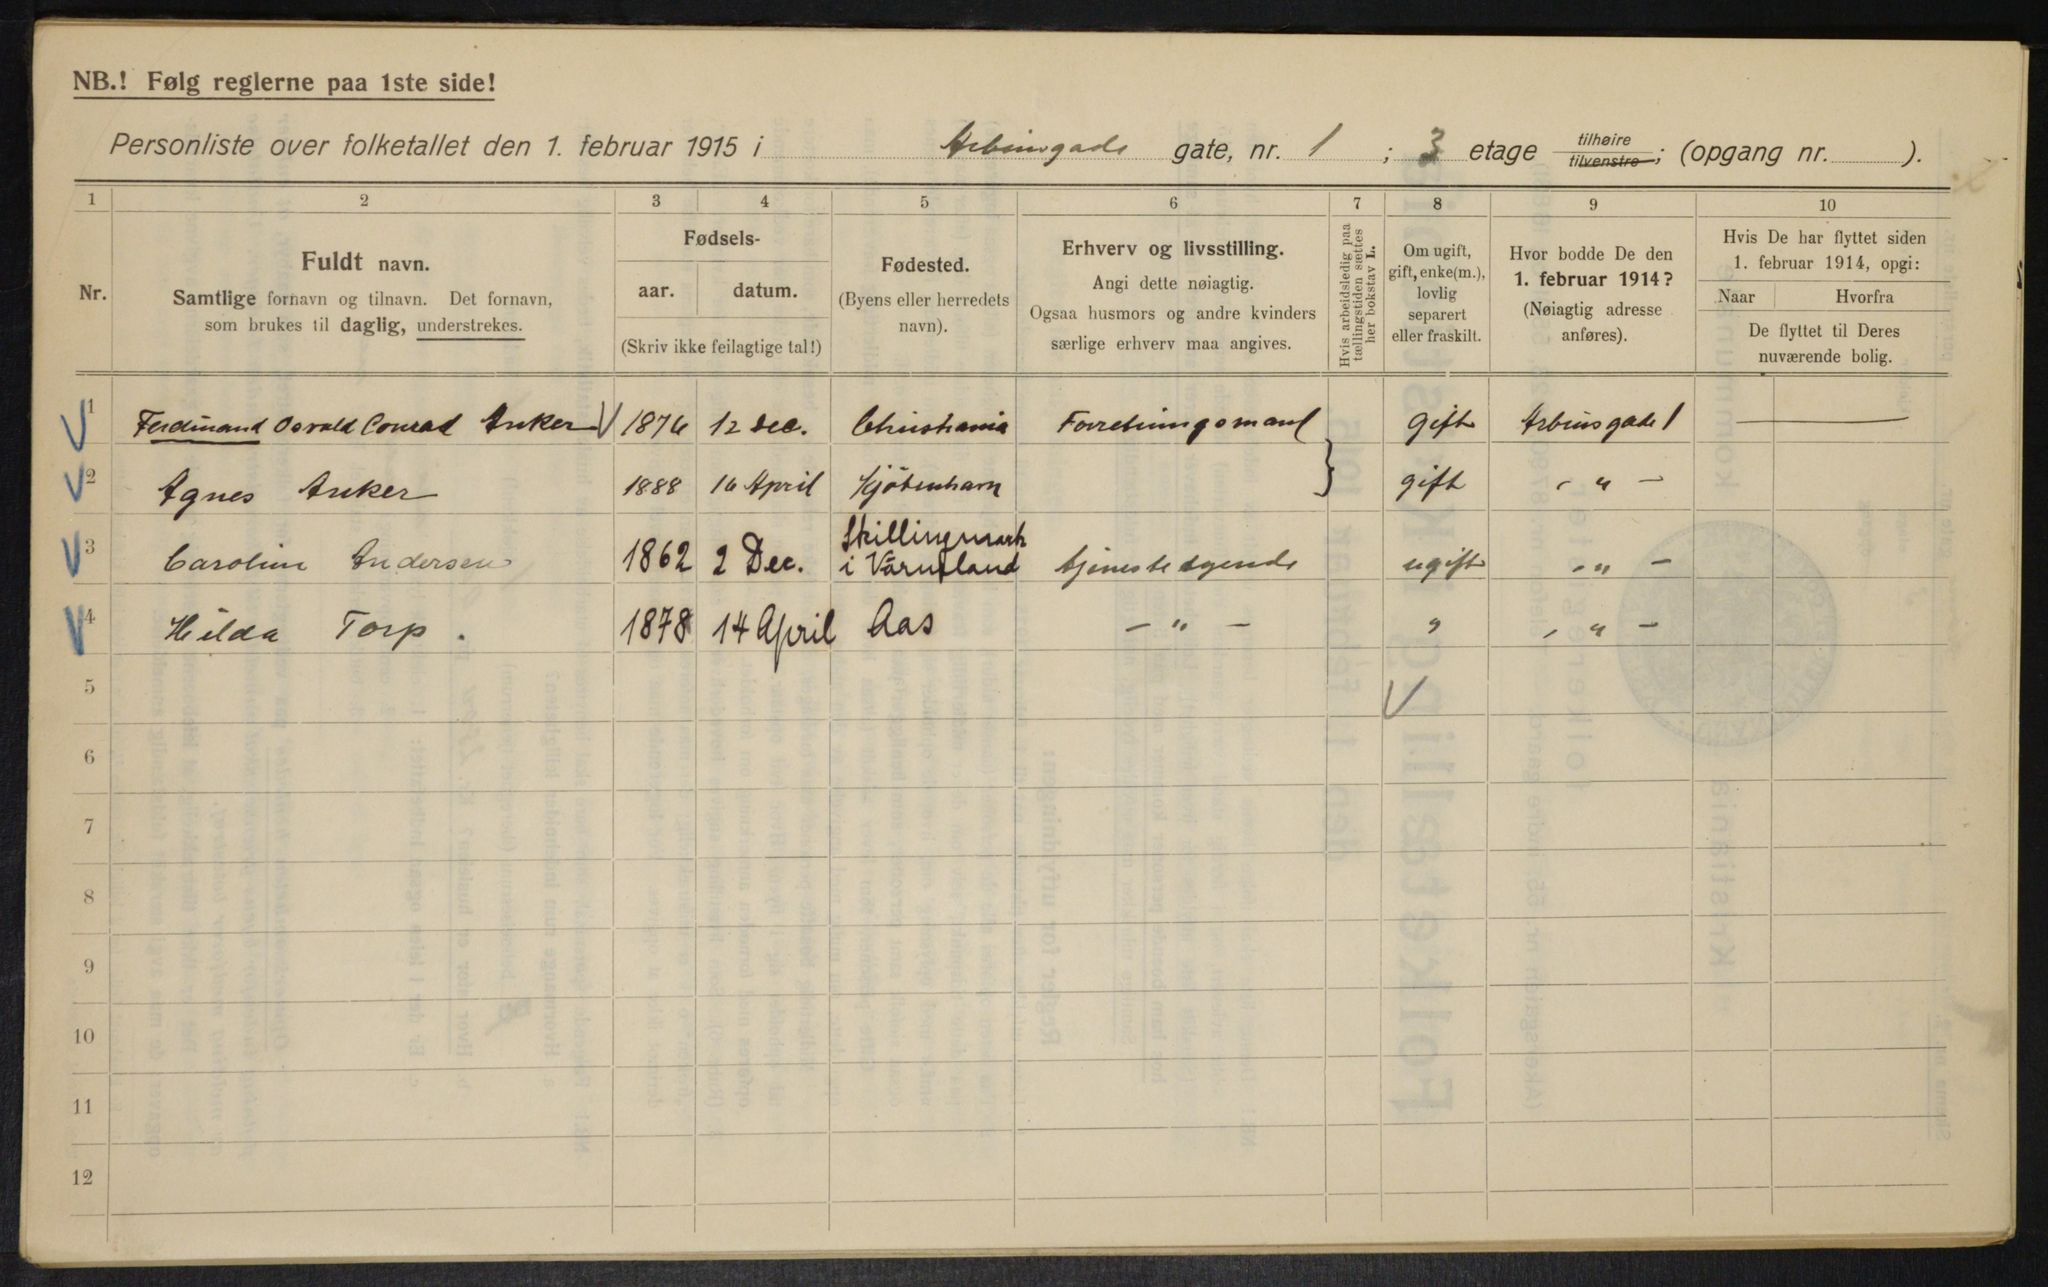 NB.! Følg reglerne paa 1ste side!
Personliste over folketallet den 1. februar 1915 i Arbinsgade gate, nr. 1 ; 3 etage tilhøire tilvenstre; (opgang nr. ).
1 2 3 4 5 6 7 8 9 10
Nr.
Fuldt navn.
Samtlige fornavn og tilnavn. Det fornavn,
som brukes til daglig, understrekes.
Fødsels-
aar. datum.
(Skriv ikke feilagtige tal!)
Fødested.
(Byens eller herredets
navn).
Erhverv og livsstilling.
Angi dette nøiagtig.
Ogsaa husmors og andre kvinders
særlige erhverv maa angives.
Hvis arbeidsledig paa
tællingstiden sættes
her bokstav L.
Om ugift,
gift, enke(m.),
lovlig
separert
eller fraskilt.
Hvor bodde De den
1. februar 1914?
(Nøiagtig adresse
anføres).
Hvis De har flyttet siden
1. februar 1914, opgi:
Naar Hvorfra
De flyttet til Deres
nuværende bolig.
1 Ferdinand Osvald Conrad Anker 1876 12 Dec. Christiania Forretningsmand gift Arbinsgade 1 —
2 Agnes Anker 1888 16 April Kjöbenhavn gift - " -
3 Caroline Andersen 1862 2 Dec. Skillingmark
i Värmland tjenestegjørende ugift - " -
4 Hilda Torp. 1878 14 April Aas - " - " - " -
5
6
7
8
9
10
11
12